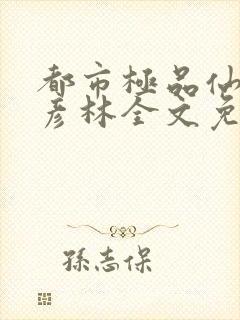 都市極品仙
彦林全文免
孫志保